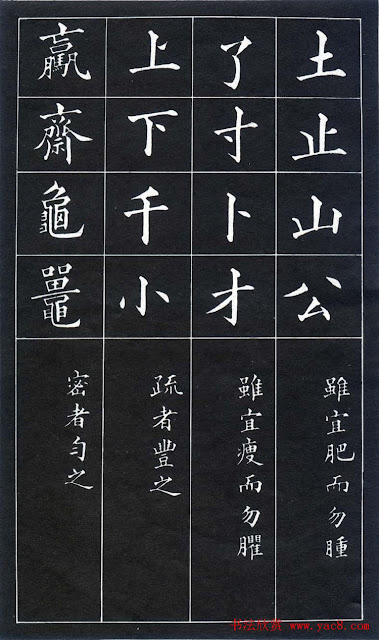 土止山公
雖宜肥而勿腫
了寸卜才
雖宜瘦而勿臞
上下千小
疏者豐之
齋龜鼉
密者勻之
书法欣赏 www.yac8.com